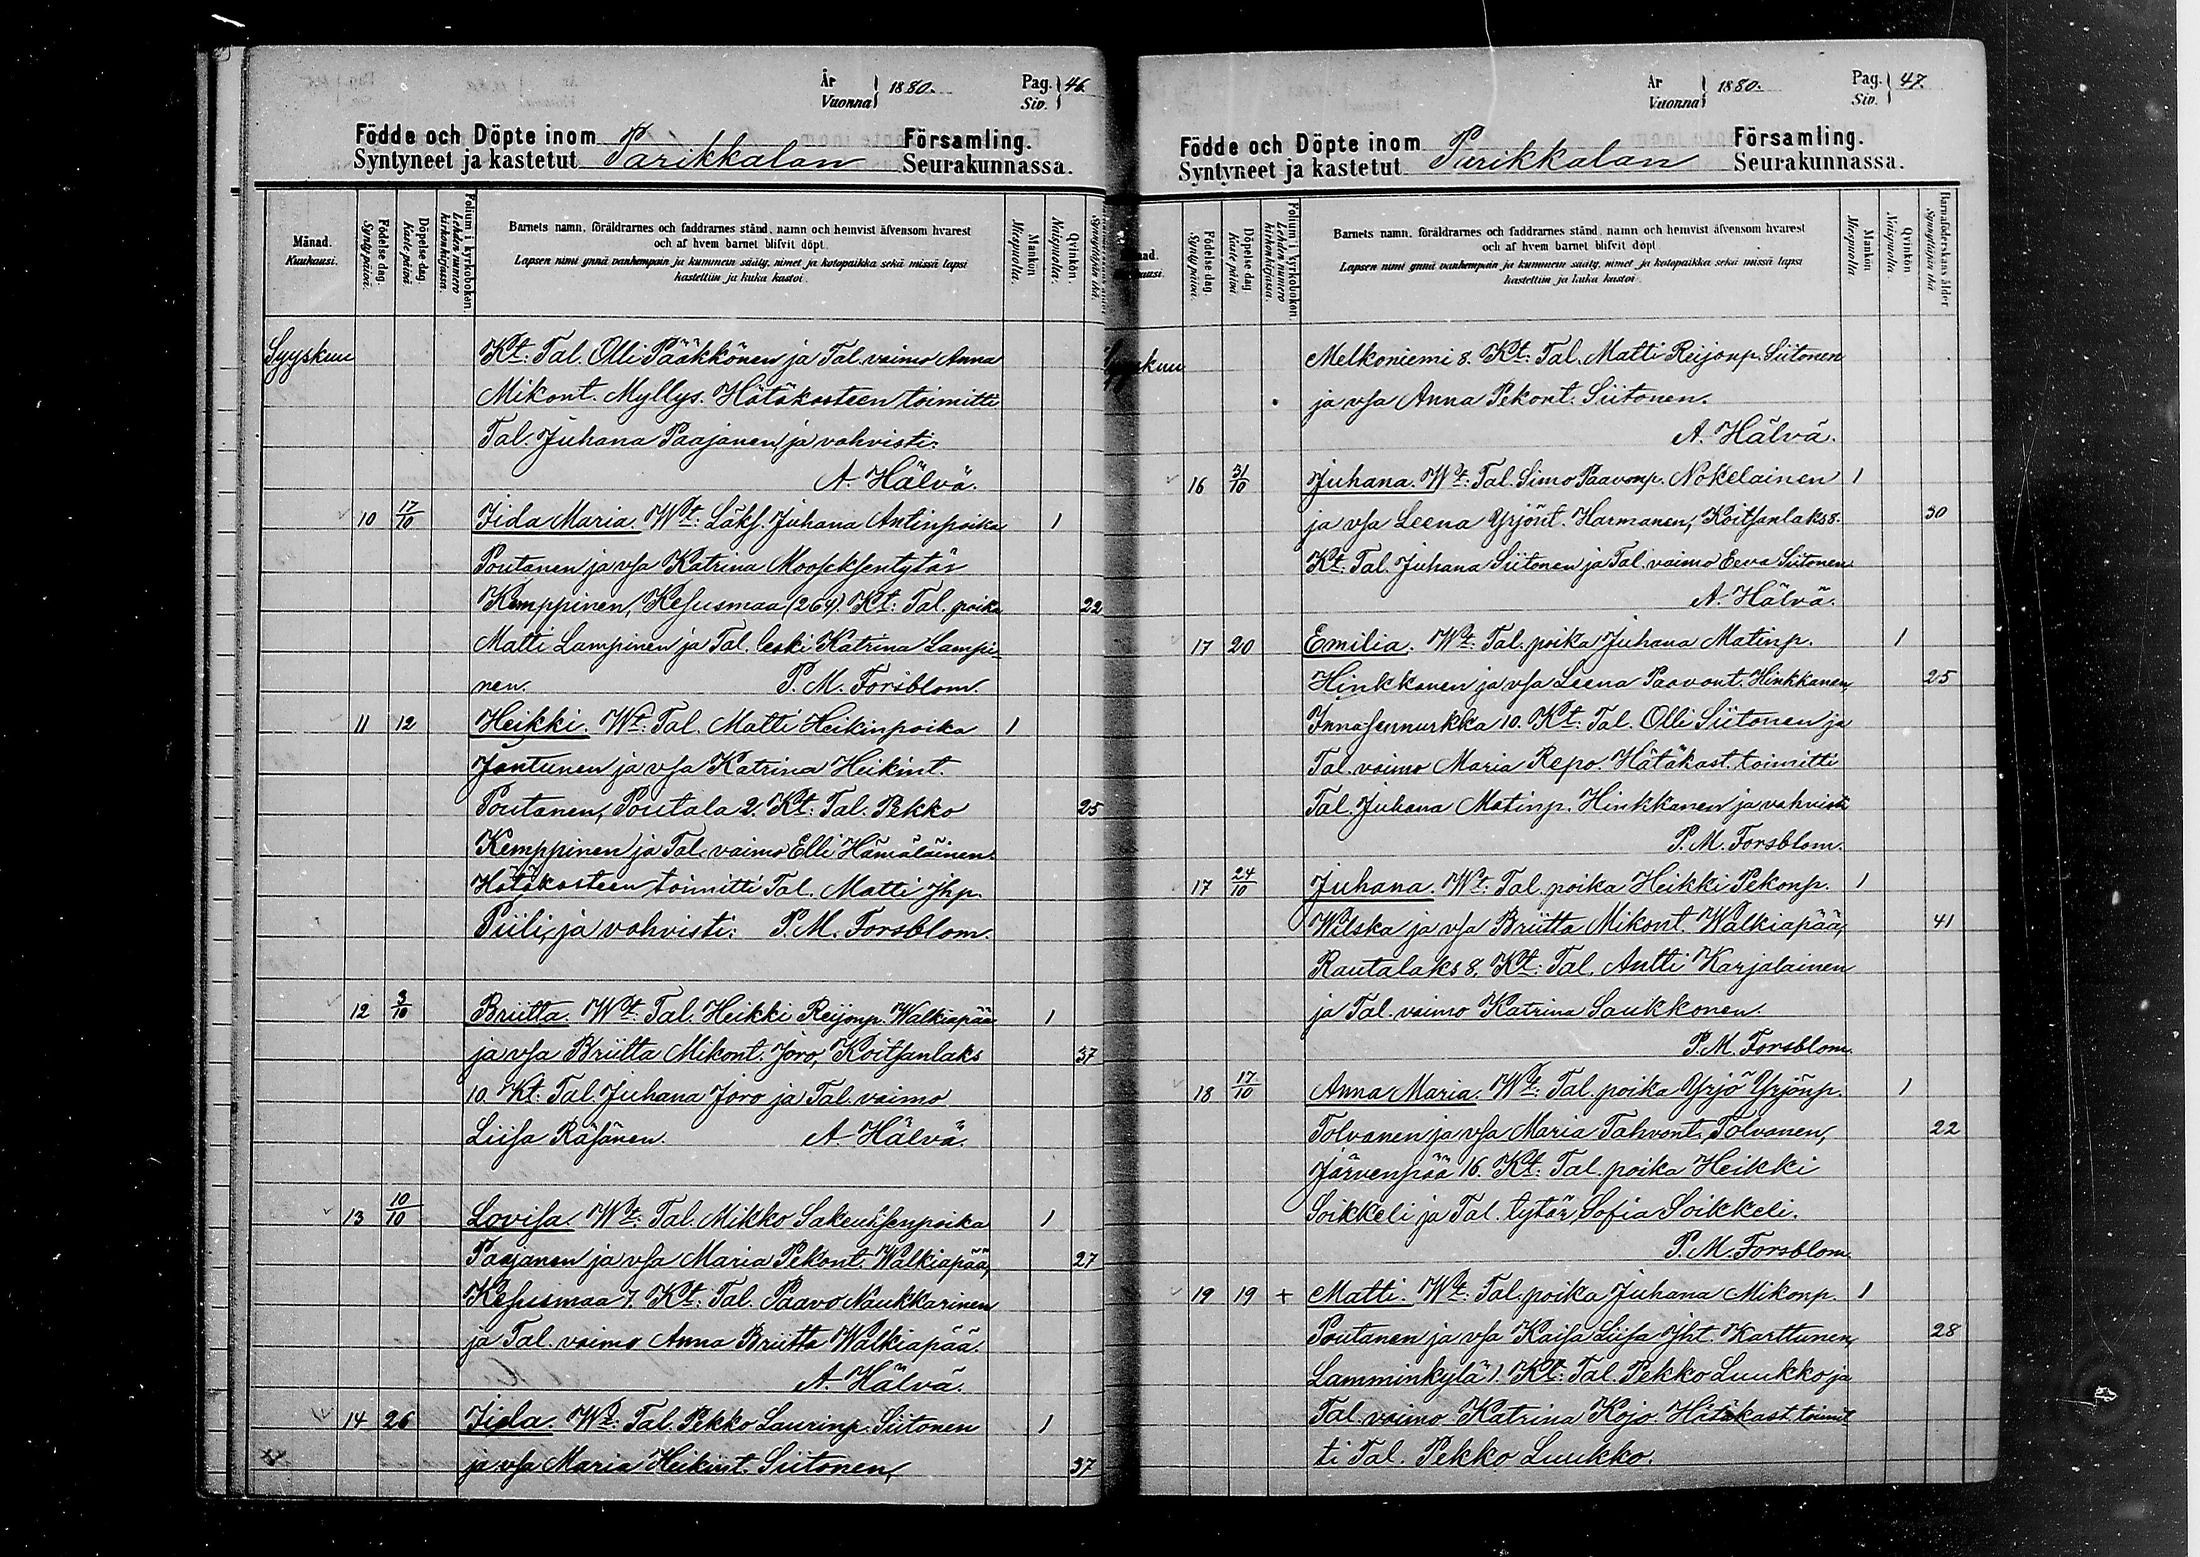 År Vuonna 1880. Pag. Siv. 46.
Födde och Döpte inom Syntyneet ja kastetut Parikkalan Församling. Seurakunnassa.
Månad. Kuukausi.
Födelse dag. Synty päivä.
Döpelse dag. Kaste päivä
Folium i kyrkoboken. Lehden numero kirkonkirjassa.
Barnets namn, föräldrarnes och faddrarnes stånd, namn och hemvist äfvensom hvarest
och af hvem barnet blifvit döpt.
Lapsen nimi ynnä vanhempain ja kummein sääty, nimet ja kotopaikka sekä missä lapsi
kastettiin ja kuka kastoi.
Mankön Miespuolia.
Qvinkön. Naispuolia.
Syyskuu Kt: Tal. Olli Pääkkönen ja Tal. vaimo Anna
Mikont. Myllys. Hätäkasteen toimitti
Tal. Juhana Paajanen, ja vahvisti:
A. Hälvä.
10 17/10 Iida Maria. Wt: Läks. Juhana Antinpoika 1
Poutanen ja vsa Katrina Mooseksentytär
Kemppinen, Kesusmaa (269) Kt: Tal. poika 22
Matti Lampinen ja Tal. leski Katrina Lampi-
nen. P. M. Forsblom.
11 12 Heikki. Wt: Tal. Matti Heikinpoika 1
Jantunen ja vsa Katrina Heikint.
Poutanen, Poutala 2. Kt: Tal. Pekko 25
Kemppinen ja Tal. vaimo Elli Hämäläinen.
Hätäkasteen toimitti Tal. Matti Jhp.
Piili, ja vahvisti: P. M. Forsblom.
12 3/10 Briitta. Wt: Tal. Heikki Reijonp. Walkiapää 1
ja vsa Briitta Mikont. Joro, Koitsanlaks 37
10. Kt: Tal. Juhana Joro ja Tal. vaimo
Liisa Räsänen. A. Hälvä.
13 10/10 Lovisa. Wt: Tal. Mikko Sakeuksenpoika 1
Paajanen ja vsa Maria Pekont. Walkiapää, 27
Kesusmaa 7. Kt: Tal. Paavo Naukkarinen
ja Tal. vaimo Anna Briitta Walkiapää.
A. Hälvä.
14 26 Iida. Wt: Tal. Pekko Laurinp. Siitonen 1
ja vsa Maria Heikint. Siitonen, 37
År Vuonna 1880. Pag. Siv. 47.
Födde och Döpte inom Syntyneet ja kastetut Parikkalan Församling. Seurakunnassa.
Födelse dag. Synty päivä.
Döpelse dag Kaste päivä
Folium i kyrkoboken. Lehden numero kirkonkirjassa.
Barnets namn, föräldrarnes och faddrarnes stånd, namn och hemvist äfvensom hvarest
och af hvem barnet blifvit döpt
Lapsen nimi ynnä vanhempain ja kummein sääty, nimet ja kotopaikka sekä missä lapsi
kastettiin ja kuka kastoi.
Mankön Miespuolia
Qvinkön Naispuolia
Barnaföderskans ålder Synnyttäjän ikä
Syyskuu Melkoniemi 8. Kt: Tal. Matti Reijonp. Siitonen
ja vsa Anna Pekont. Siitonen.
A. Hälvä.
16 31/10 Juhana. Wt: Tal. Simo Paavonp. Nokelainen 1
ja vsa Leena Yrjönt. Harmanen, Koitsanlaks 8. 30
Kt: Tal. Juhana Siitonen ja Tal. vaimo Eeva Siitonen
A. Hälvä.
17 20 Emilia. Wt: Tal. poika Juhana Matinp. 1
Hinkkanen ja vsa Leena Paavont. Hinkkanen, 25
Innasennurkka 10. Kt: Tal. Olli Siitonen ja
Tal. vaimo Maria Repo. Hätäkast. toimitti
Tal. Juhana Matinp. Hinkkanen ja vahvisti
P. M. Forsblom.
17 24/10 Juhana. Wt: Tal. poika Heikki Pekonp. 1
Wilska ja vsa Briitta Mikont. Walkiapää, 41
Rautalaks 8. Kt: Tal. Antti Karjalainen
ja Tal. vaimo Katrina Saukkonen.
P. M. Forsblom.
18 17/10 Anna Maria. Wt: Tal. poika Yrjö Yrjönp. 1
Tolvanen ja vsa Maria Tahvont. Tolvanen, 22
Järvenpää 16. Kt: Tal. poika Heikki
Soikkeli ja Tal. tytär Sofia Soikkeli.
P. M. Forsblom.
19 19 + Matti. Wt: Tal. poika Juhana Mikonp. 1
Poutanen ja vsa Kaisa Liisa Jht. Karttunen, 28
Lamminkylä 1. Kt: Tal. Pekko Luukko ja
Tal. vaimo Katrina Kojo. Hätäkast. toimit
ti Tal. Pekko Luukko.